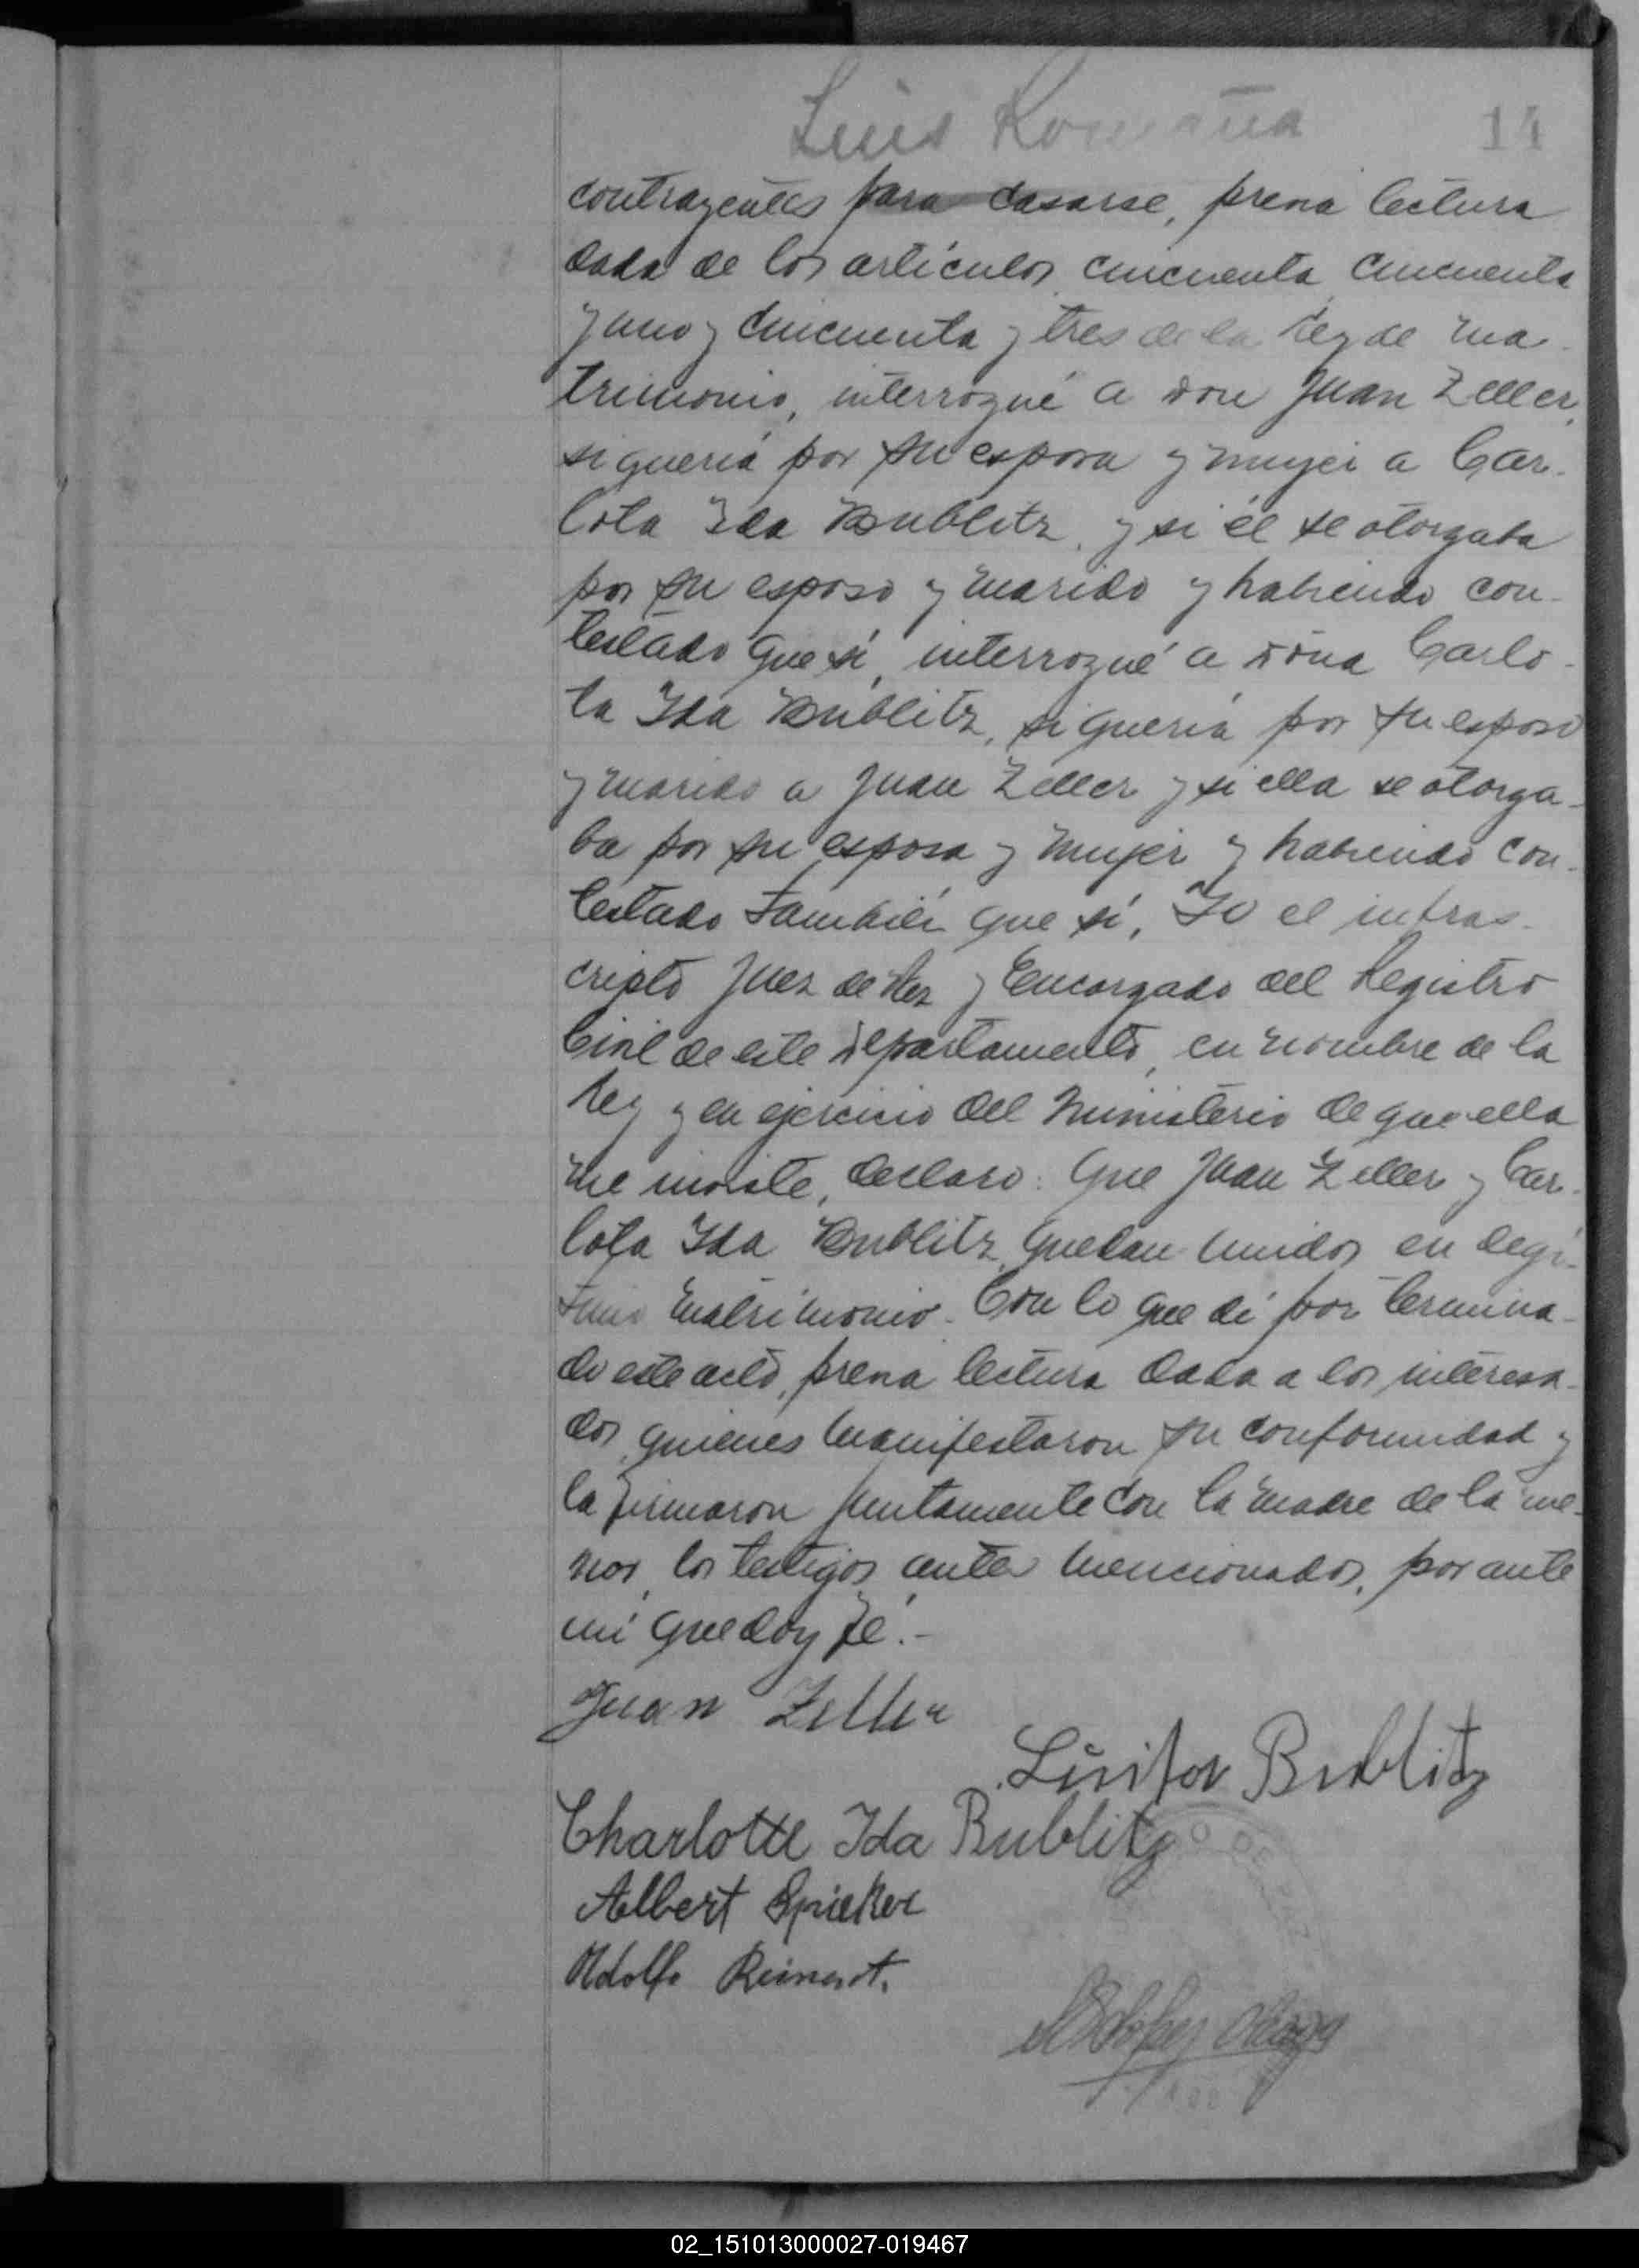 Luis Romaña
14
contrayentes para casarse, previa lectura
dada de los artículos cincuenta, cincuenta
y uno y cincuenta y tres de la Ley de Ma-
trimonio, interrogué a don Juan Zeller,
si quería por su esposa y mujer a Car-
lota Ida Bublitz, y si él se otorgaba
por su esposo y marido y habiendo con-
testado que sí, interrogué a doña Carlo-
ta Ida Bublitz, si quería por su esposo
y marido a Juan Zeller y si ella se otorga-
ba por su esposa y mujer y habiendo con-
testado también que sí, Yo el infras-
cripto Juez de Paz y Encargado del Registro
Civil de este departamento, en nombre de la
Ley y en ejercicio del Ministerio de que ella
me inviste, declaro: Que Juan Zeller y Car-
lota Ida Bublitz, quedan unidos en legí-
timo matrimonio. Con lo que dí por termina-
do este acto, previa lectura dada a los interesa-
dos, quienes manifestaron su conformidad y
la firmaron juntamente con la madre de la me-
nor, los testigos antes mencionados, por ante
mí que doy fé.-
Juan Zeller
Luisa Bublitz
Charlotte Ida Bublitz
Albert Spieker
Adolfo Reinerot.
02_151013000027-019467